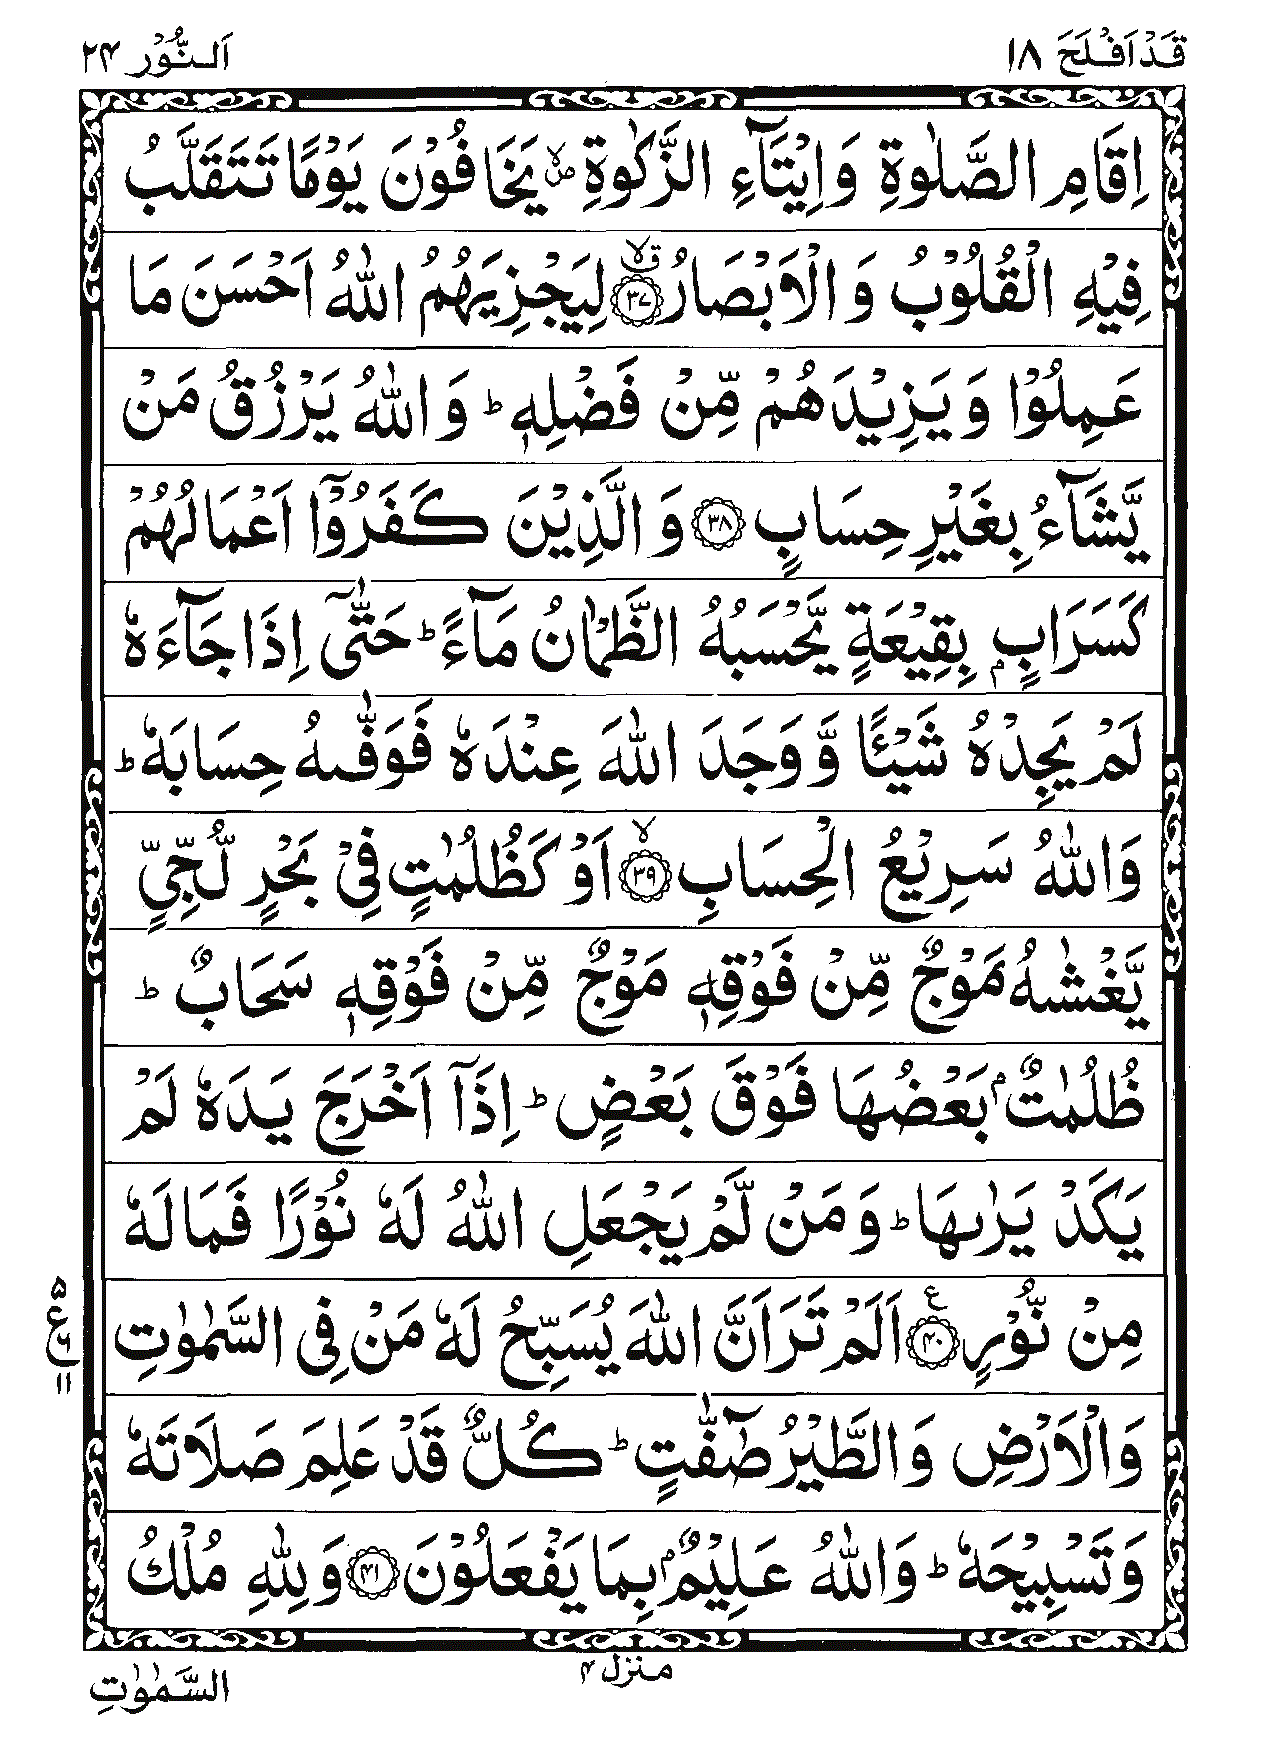 قَدْ اَفْلَحَ ١٨
اَلنُّوْر ٢٤
اِقَامِ الصَّلٰوةِ وَاِيْتَآءِ الزَّكٰوةِ ۪ۙ يَخَافُوْنَ يَوْمًا تَتَقَلَّبُ
فِيْهِ الْقُلُوْبُ وَ الْاَبْصَارُ ۙ۝٣٧ لِيَجْزِيَهُمُ اللّٰهُ اَحْسَنَ مَا
عَمِلُوْا وَ يَزِيْدَهُمْ مِّنْ فَضْلِهٖ ؕ وَ اللّٰهُ يَرْزُقُ مَنْ
يَّشَآءُ بِغَيْرِ حِسَابٍ ۝٣٨ وَ الَّذِيْنَ كَفَرُوْۤا اَعْمَالُهُمْ
كَسَرَابٍۭ بِقِيْعَةٍ يَّحْسَبُهُ الظَّمْاٰنُ مَآءً ؕ حَتّٰۤى اِذَا جَآءَهٗ
لَمْ يَجِدْهُ شَيْـًٔا وَّ وَجَدَ اللّٰهَ عِنْدَهٗ فَوَفّٰىهُ حِسَابَهٗ ؕ
وَاللّٰهُ سَرِيْعُ الْحِسَابِ ۙ۝٣٩ اَوْ كَظُلُمٰتٍ فِيْ بَحْرٍ لُّجِّيٍّ
يَّغْشٰىهُ مَوْجٌ مِّنْ فَوْقِهٖ مَوْجٌ مِّنْ فَوْقِهٖ سَحَابٌ ؕ
ظُلُمٰتٌۢ بَعْضُهَا فَوْقَ بَعْضٍ ؕ اِذَاۤ اَخْرَجَ يَدَهٗ لَمْ
يَكَدْ يَرٰىهَا ؕ وَ مَنْ لَّمْ يَجْعَلِ اللّٰهُ لَهٗ نُوْرًا فَمَا لَهٗ
مِنْ نُّوْرٍ ۝٤٠ۧ اَلَمْ تَرَ اَنَّ اللّٰهَ يُسَبِّحُ لَهٗ مَنْ فِى السَّمٰوٰتِ
٥ ع ٦ ١١
وَالْاَرْضِ وَالطَّيْرُ صٰٓفّٰتٍ ؕ كُلٌّ قَدْ عَلِمَ صَلَاتَهٗ
وَتَسْبِيْحَهٗ ؕ وَ اللّٰهُ عَلِيْمٌۢ بِمَا يَفْعَلُوْنَ ۝٤١ وَ لِلّٰهِ مُلْكُ
منزل ٤
السَّمٰوٰتِ